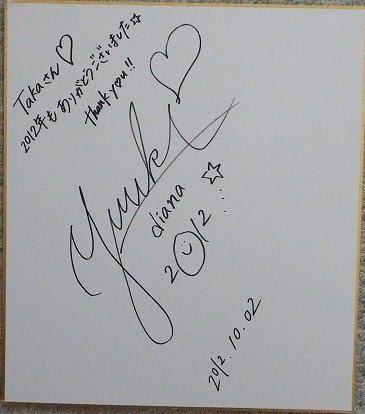 Takaさん♡
2012年もありがとうございました☆
Thank you!!
Yuuki
diana
2012
2012.10.02